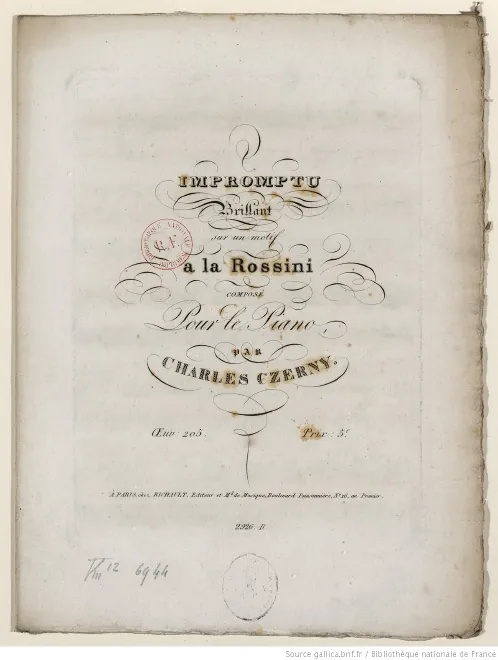 IMPROMPTU
Brillant
sur un motif
a la Rossini
COMPOSÉ
Pour le Piano,
PAR
CHARLES CZERNY.
Œuv: 205.
Prix: 5f
À PARIS, chez RICHAULT, Editeur et Md. de Musique, Boulevard Poissonnière, No. 16, au Premier.
2926. R
Vm 12 6944
Source gallica.bnf.fr / Bibliothèque nationale de France